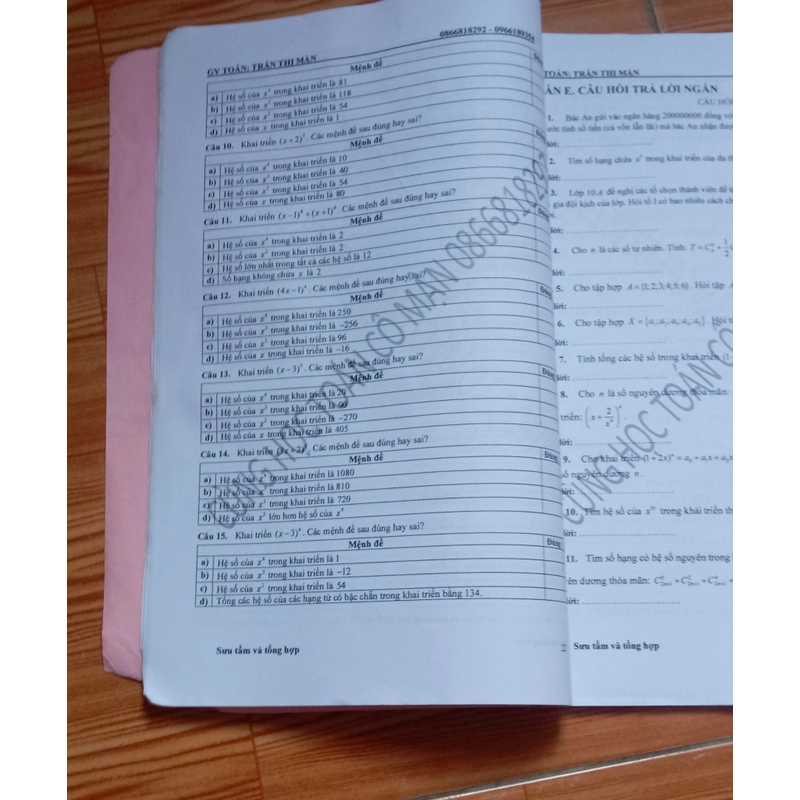 GV TOÁN: TRẦN THỊ MẬN
0866818292 - 0966189254
Mệnh đề
a) Hệ số của trong khai triển là 81
b) Hệ số của trong khai triển là 118
c) Hệ số của trong khai triển là 54
d) Hệ số của x trong khai triển là 1
Câu 10. Khai triển Các mệnh đề sau đúng hay sai?
Mệnh đề
a) Hệ số của trong khai triển là 10
b) Hệ số của trong khai triển là 40
c) Hệ số của trong khai triển là 54
d) Hệ số của x trong khai triển là 80
Câu 11. Khai triển (x−1)⁴ + (x+1)⁴ Các mệnh đề sau đúng hay sai?
Mệnh đề
a) Hệ số của x⁴ trong khai triển là 2
b) Hệ số của trong khai triển là 2
c) Hệ số lớn nhất trong tất cả các hệ số là 12
d) Số hạng không chứa x là 2
Câu 12. Khai triển (4x−1)⁴ Các mệnh đề sau đúng hay sai?
Mệnh đề
Đúng
a) Hệ số của x⁴ trong khai triển là 250
b) Hệ số của x³ trong khai triển là −256
c) Hệ số của x² trong khai triển là 96
d) Hệ số của x trong khai triển là −16
Câu 13. Khai triển (x−3)⁵. Các mệnh đề sau đúng hay sai?
Mệnh đề
Đúng
a) Hệ số của x⁴ trong khai triển là 20
b) Hệ số của x³ trong khai triển là 90
c) Hệ số của x² trong khai triển là −270
d) Hệ số của x trong khai triển là 405
Câu 14. Khai triển (3x+2)⁵. Các mệnh đề sau đúng hay sai?
Mệnh đề
Đúng
a) Hệ số của trong khai triển là 1080
b) Hệ số của trong khai triển là 810
c) Hệ số của trong khai triển là 720
d) Hệ số của x³ lớn hơn hệ số của x⁴
Câu 15. Khai triển (x−3)⁴. Các mệnh đề sau đúng hay sai?
Mệnh đề
Đúng
a) Hệ số của x⁴ trong khai triển là 1
b) Hệ số của x³ trong khai triển là −12
c) Hệ số của x² trong khai triển là 54
d) Tổng các hệ số của các hạng tử có bậc chẵn trong khai triển bằng 134.
Sưu tầm và tổng hợp
CÙNG HỌC TOÁN CÔ MẬN 0866818292
TOÁN: TRẦN THỊ MẬN
ẦN E. CÂU HỎI TRẢ LỜI NGẮN
CÂU HỎI
1. Bác An gửi vào ngân hàng 200000000 đồng
ước tính số tiền (cả vốn lẫn lãi) mà bác An nhận được
lời:
2. Tìm số hạng chứa trong khai triển của đa
lời:
3. Lớp 10A đề nghị các tổ chọn thành viên để
gia đội kịch của lớp. Hỏi tổ I có bao nhiêu cách
lời:
4. Cho n là các số tự nhiên. Tính:
lời:
5. Cho tập hợp A = {1;2;3;4;5;6}. Hỏi tập
lời:
6. Cho tập hợp Hỏi
lời:
7. Tính tổng các hệ số trong khai triển
lời:
8. Cho n là số nguyên dương thỏa mãn
triển:
lời:
9. Cho khai triển
ố nguyên dương n.
lời:
10. Tìm hệ số của trong khai triển
lời:
11. Tìm số hạng có hệ số nguyên trong
ên dương thỏa mãn:
lời:
Sưu tầm và tổng hợp
CÙNG HỌC TOÁN CÔ